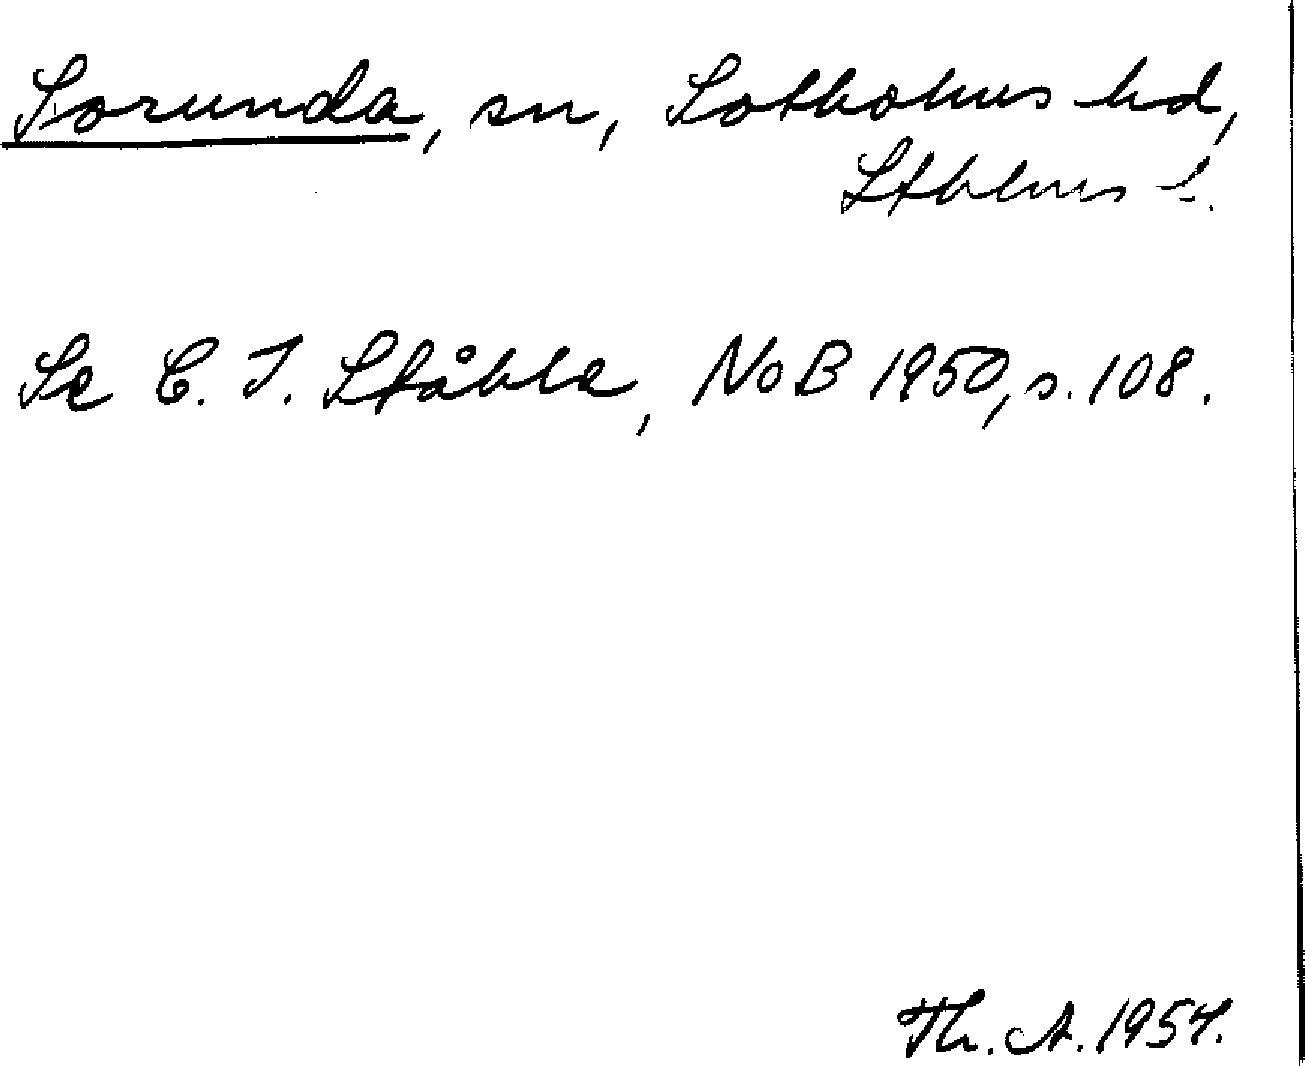 Sorunda, sn, Sotholms hd,
Sthlms l.
Se C. I. Ståhle, NoB 1950, s. 108.
Th. A. 1954.